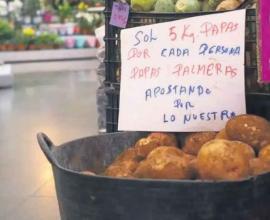 SOL 5 Kg. PAPAS
POR CADA PERSONA
PAPAS PALMERAS
APOSTANDO
POR
LO NUESTRO